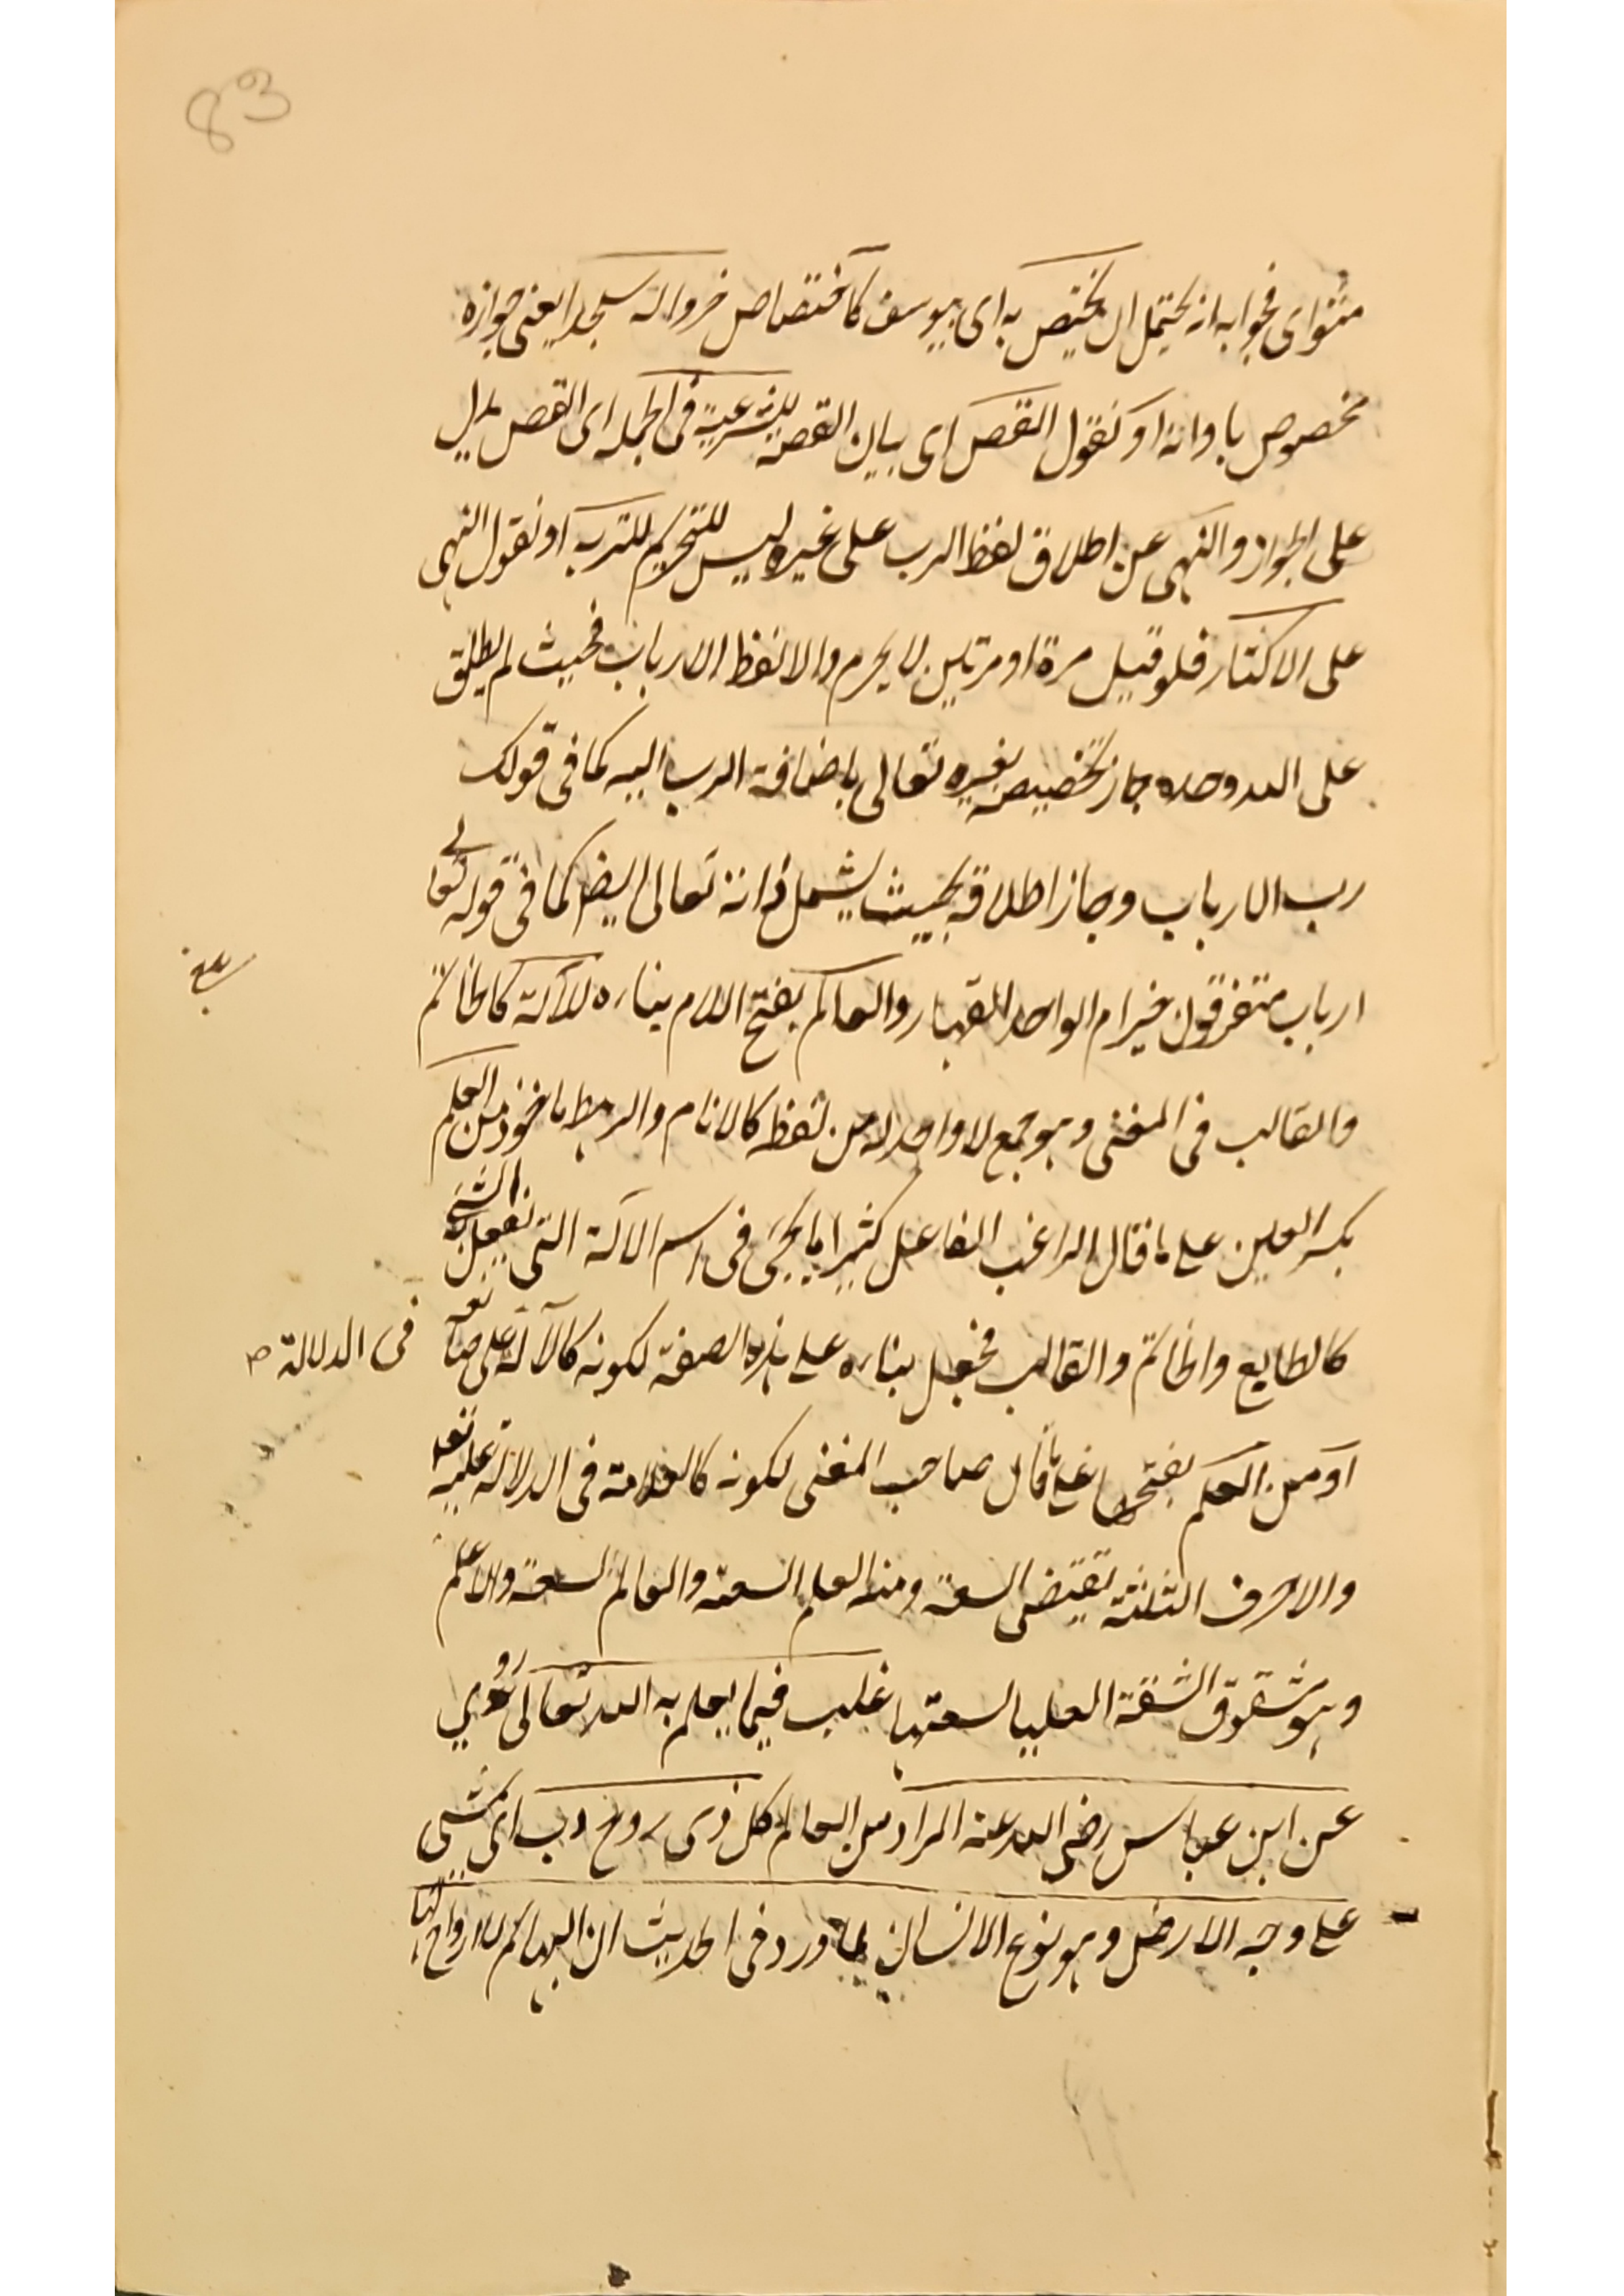 83
مثواى فجوابه انه يحتمل ان يختص به اى بيوسف كاختصاص خروا له سجدا يعنى جوازه
مخصوص باوانه او نقول القصص اى بيان القصة للشرعية فى الجملة اى القصص يدل
على الجواز والنهى عن اطلاق لفظ الرب على غيره ليس للتحريم للتنزيه او نقول النهى
على الاكثار فلو قيل مرة او مرتين لا يحرم والا لفظ الارباب فحيث لم يطلق
على الله وحده جاز تخصيصه بغيره تعالى باضافة الرب اليه كما فى قولك
رب الارباب وجاز اطلاقه بحيث يشمل ذاته تعالى ايضا كما فى قوله تعالى
ارباب متفرقون خير ام الواحد القهار والعالم بفتح اللام بناءه للآلة كالخاتم
والقالب فى المغنى وهو جمع لا واحد له من لفظه كالانام والرهط ماخوذ من العلم
بكسر العين على ما قال الراغب الفاعل كثيرا ما يجئ فى اسم الآلة التى يفعل به الشئ
كالطابع والخاتم والقالب فجعل بناءه على هذه الصفة لكونه كالآلة على صانعه
فى الدلالة
او من العلم بفتحها على ما قال صاحب المغنى لكونه كالعلامة فى الدلالة عليه تعالى
والاحرف الثلثة تقتضى السعة ومنه العلم السعة والعالم لسعته والاعلم
وهو مشقوق الشفة العليا لسعتها غلب فيما يعلم به الله تعالى روى
عن ابن عباس رضى الله عنه المراد من العالم كل ذى روح دب اى مشى
على وجه الارض وهو نوع الانسان لما ورد فى الحديث ان البهائم لا ارواح لها